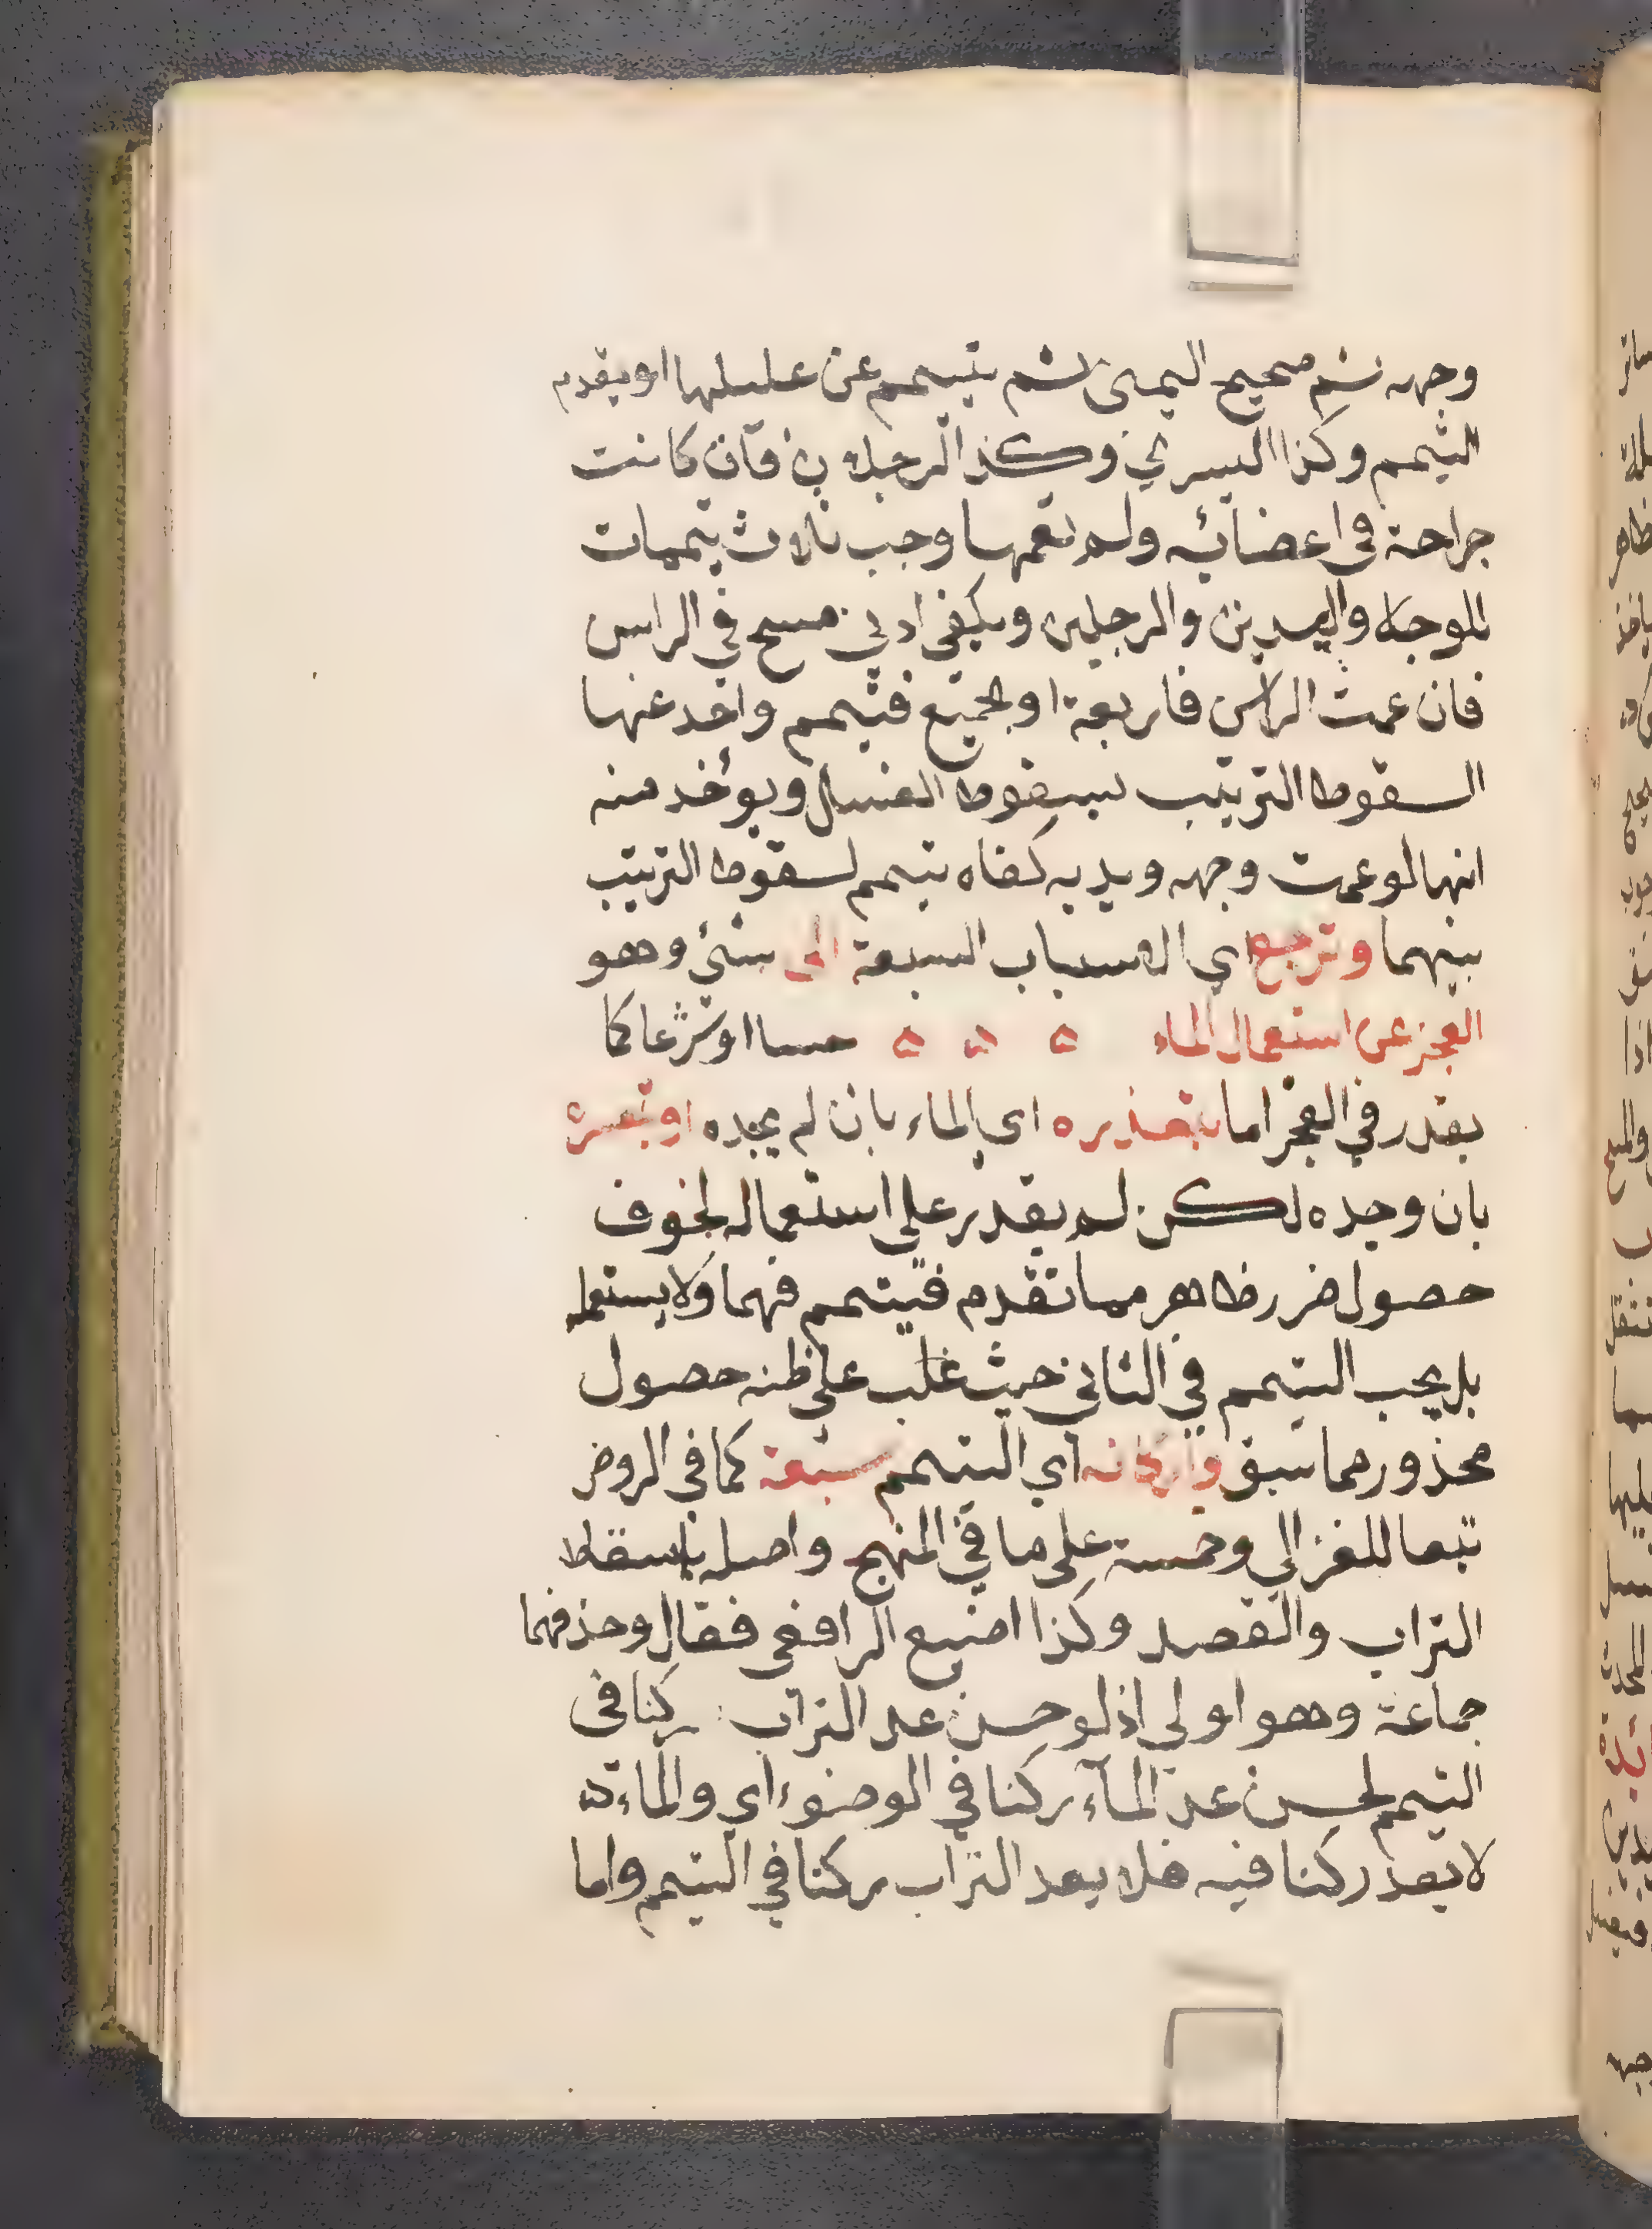 وجهه ثم صحيح اليمنى ثم يتيمم عن عليلها او يقدم
التيمم وكذا اليسري وكذا الرجلان فان كانت
جراحة في اعضائه ولم تعمها وجب ثلاث تيممات
للوجه واليدين والرجلين ويكفي ادني مسح في الراس
فان عمت الراس فاربعة او الجميع فتيمم واحد عنها
السقوط الترتيب بسقوط الغسل ويؤخذ منه
انها لو عمت وجهه ويديه كفاه تيمم لسقوط الترتيب
بينهما وترجع اي الاسباب السبعة الى شئ وهو
العجز عن استعمال الماء ه ه ه حسا او شرعا كما
يقدر في العجز اما بتعذره اي الماء بان لم يجده او بتعسره
بان وجده لكن لم يقدر على استعماله لخوف
حصول ضرر ظاهر مما تقدم فيتمم فيهما ولا يستعمله
بل يجب التيمم في الثاني حيث غلب على ظنه حصول
محذور مما سبق واركانه اي التيمم سبعة كما في الروض
تبعا للغزالي وخمسة على ما في المنهج واصله باسقاط
التراب والقصد وكذا اصنيع الرافعى فقال وحذفهما
جماعة وهو اولي اذ لو حسن عد التراب ركنا فى
التيمم لحسن عد المآء ركنا في الوضوء اي والماء
لا يعد ركنا فيه فلا يعد التراب ركنا في التيمم واما